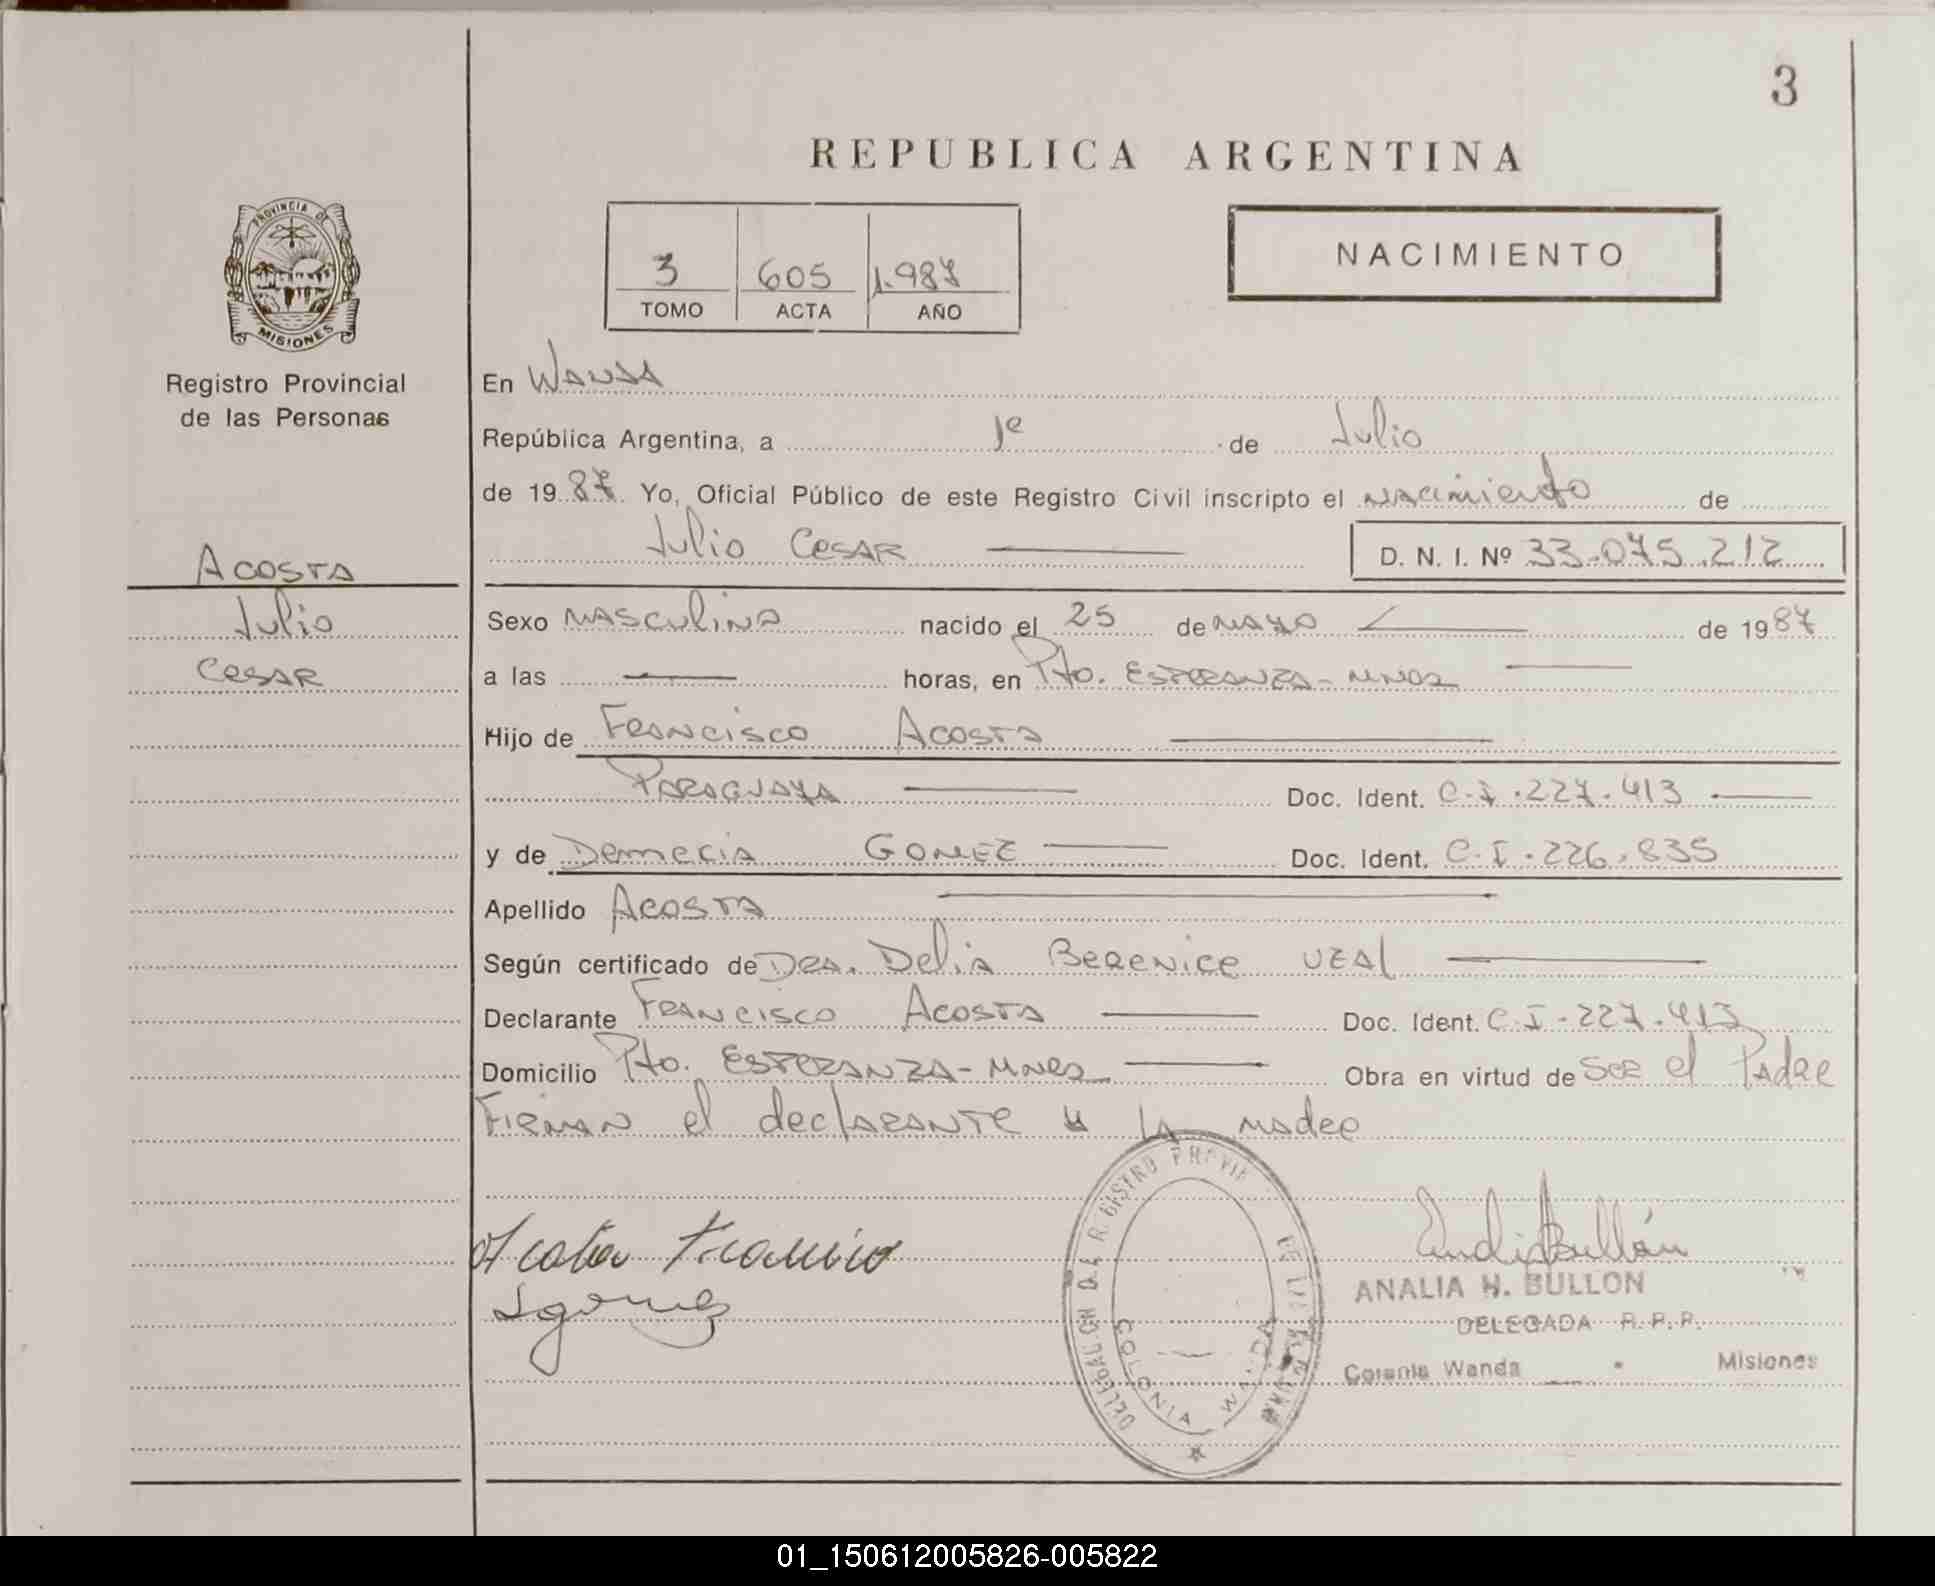 3
REPUBLICA ARGENTINA
NACIMIENTO
3 605 1.987
TOMO ACTA AÑO
PROVINCIA DE
MISIONES
Registro Provincial
de las Personas
Acosta
Julio
Cesar
En Wanda
República Argentina, a 1º de Julio
de 1987. Yo, Oficial Público de este Registro Civil inscripto el nacimiento de
Julio Cesar D. N. I. Nº 33.075.212
Sexo masculino nacido el 25 de mayo de 1987
a las horas, en Pto. Esperanza-Mnes
Hijo de Francisco Acosta
Paraguaya Doc. Ident. C.I.227.413
y de Demecia Gomez Doc. Ident. C.I.226.835
Apellido Acosta
Según certificado de Dra. Delia Berenice
Declarante Francisco Acosta Doc. Ident. C.I-227.413
Domicilio Pto. Esperanza-Mnes Obra en virtud de ser el Padre
Firman el declarante y la madre
ANALIA H. BULLON
DELEGADA R.P.P.
Colonia Wanda Misiones
COLONIA WANDA
01_150612005826-005822